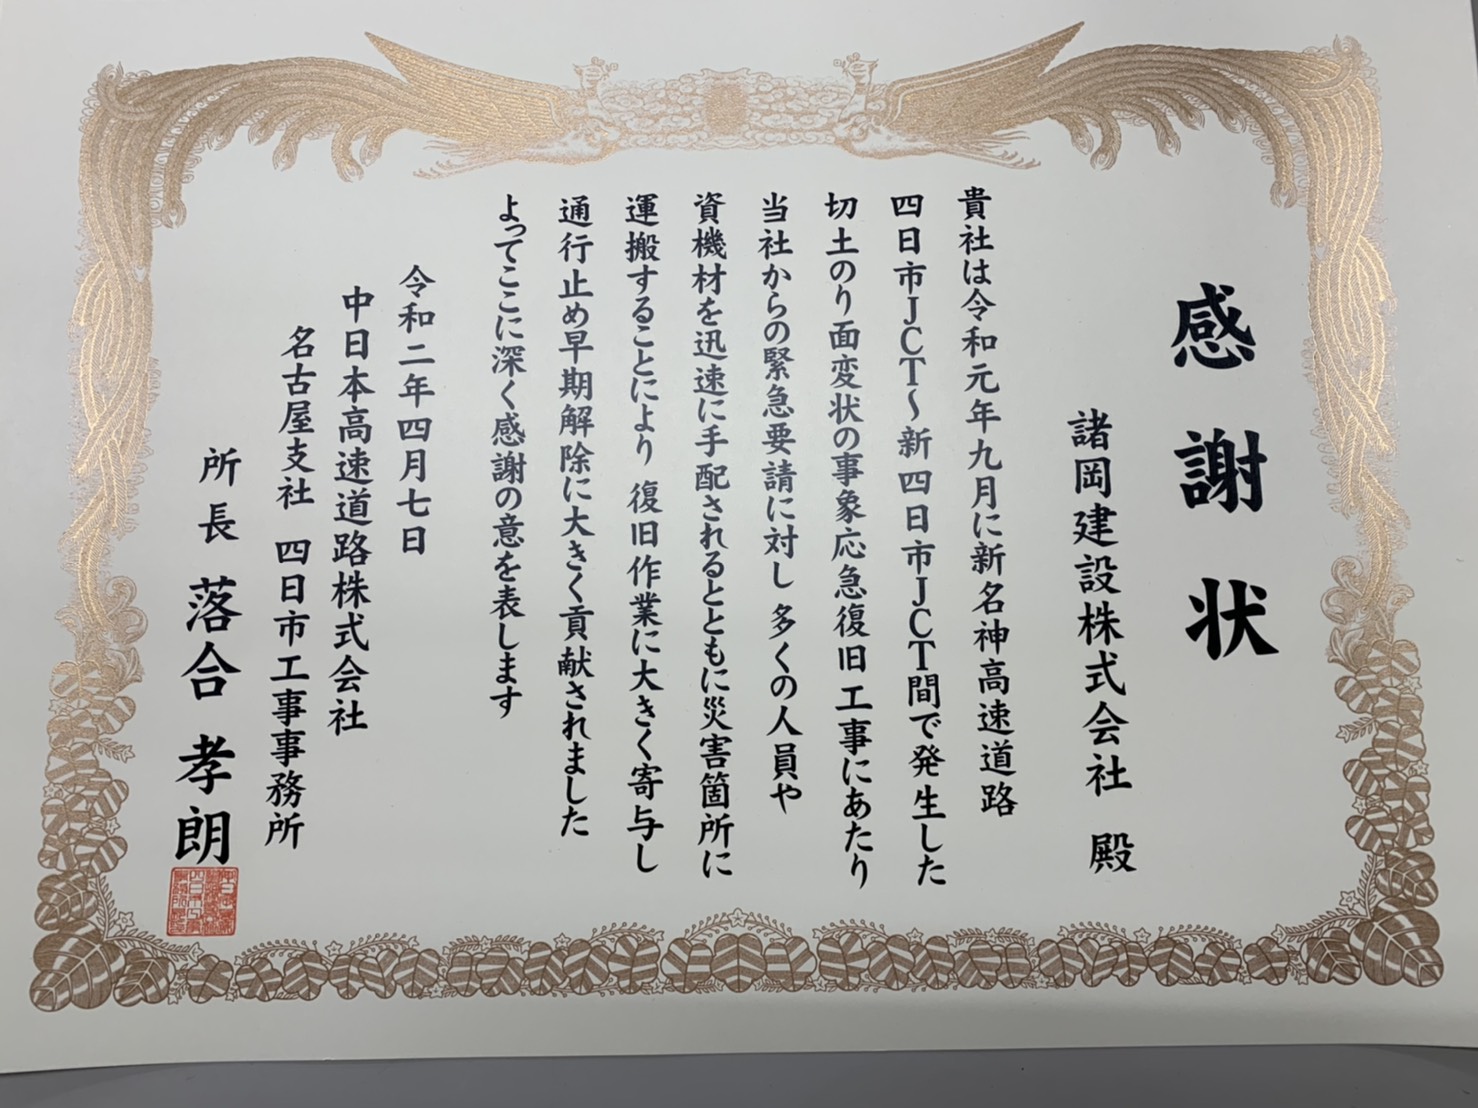 感謝状
諸岡建設株式会社 殿
貴社は令和元年九月に新名神高速道路
四日市JCT～新四日市JCT間で発生した
切土のり面変状の事象応急復旧工事にあたり
当社からの緊急要請に対し 多くの人員や
資機材を迅速に手配されるとともに災害箇所に
運搬することにより 復旧作業に大きく寄与し
通行止め早期解除に大きく貢献されました
よってここに深く感謝の意を表します
令和二年四月七日
中日本高速道路株式会社
名古屋支社 四日市工事事務所
所長 落合 孝朗